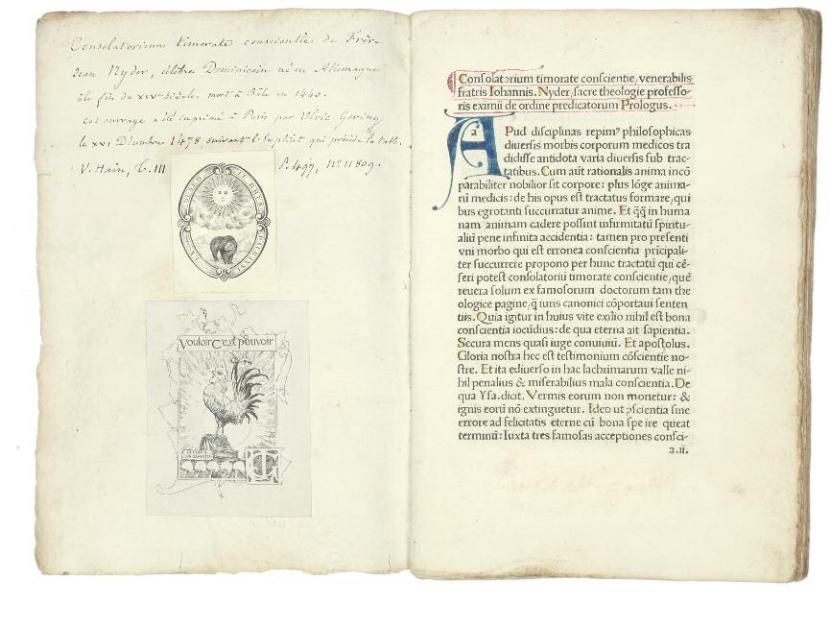 Consolatorium timorate conscientie de Frère
Jean Nyder, célèbre Dominicain né en Allemagne
à la fin du XIVe siècle. mort à Bâle en 1440.
cet ouvrage a été imprimé à Paris par Ulric Gering
le XVI Décembre 1478 suivant l'Explicit qui précède la table.
V. Hain, T. III P. 497, No. 11809.
Vouloir C'est pouvoir
Consolatorium timorate conscientie, venerabilis
fratris Iohannis. Nyder, sacre theologie professo-
ris eximii de ordine predicatorum Prologus.
a
APud disciplinas repim? philosophicas
diuersis morbis corporum medicos tra
didisse antidota varia diuersis sub trac-
tatibus. Cum aūt rationalis anima incō
parabiliter nobilior sit corpore: plus lōge anima-
rū medicis: de his opus est tractatus formare, qui
bus egrotanti succurratur anime. Et q̄q̄ in huma
nam animam cadere possint infirmitatū spiritu-
aliū pene infinita accidentia: tamen pro presenti
vni morbo qui est erronea conscientia prīcipali-
ter succurrere propono per hunc tractatū qui cē-
seri potest consolatorii timorate conscientie, quē
reuera solum ex famosorum doctorum tam the
ologice pagine, q̄ iuris canonici cōportaui senten
tiis. Quia igitur in huius vite exilio nihil est bona
conscientia iocūdius: de qua eterna ait sapientia.
Secura mens quasi iuge conuiuiū. Et apostolus.
Gloria nostra hec est testimonium cōscientie no-
stre. Et ita ediuerso in hac lachrimarum valle ni-
hil penalius & miserabilius mala conscientia. De
qua Ysa. dicit. Vermis eorum non moritur: &
ignis eorū nō extinguetur. Ideo ut ꝯscientia sine
errore ad felicitatis eterne cū bona spe ire queat
terminū: Iuxta tres famosas acceptiones consci-
a.ii.